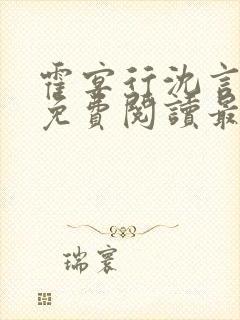 霍宴行沈言
免費閱讀最
瑞寰